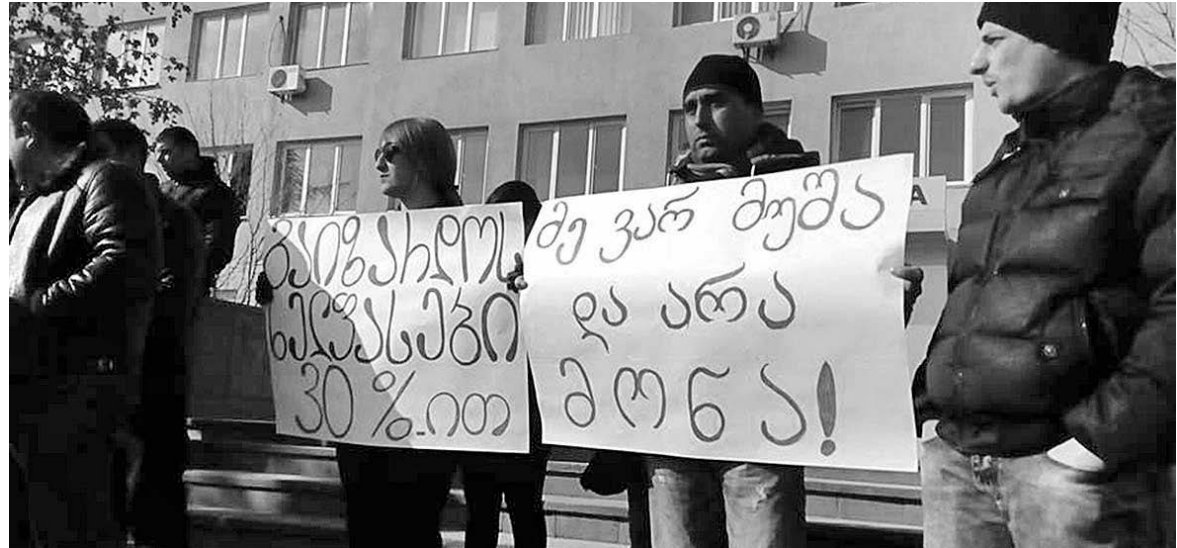 გაიზარდოს
ხელფასები
30%-ით
მე ვარ მუშა
და არა
მონა!